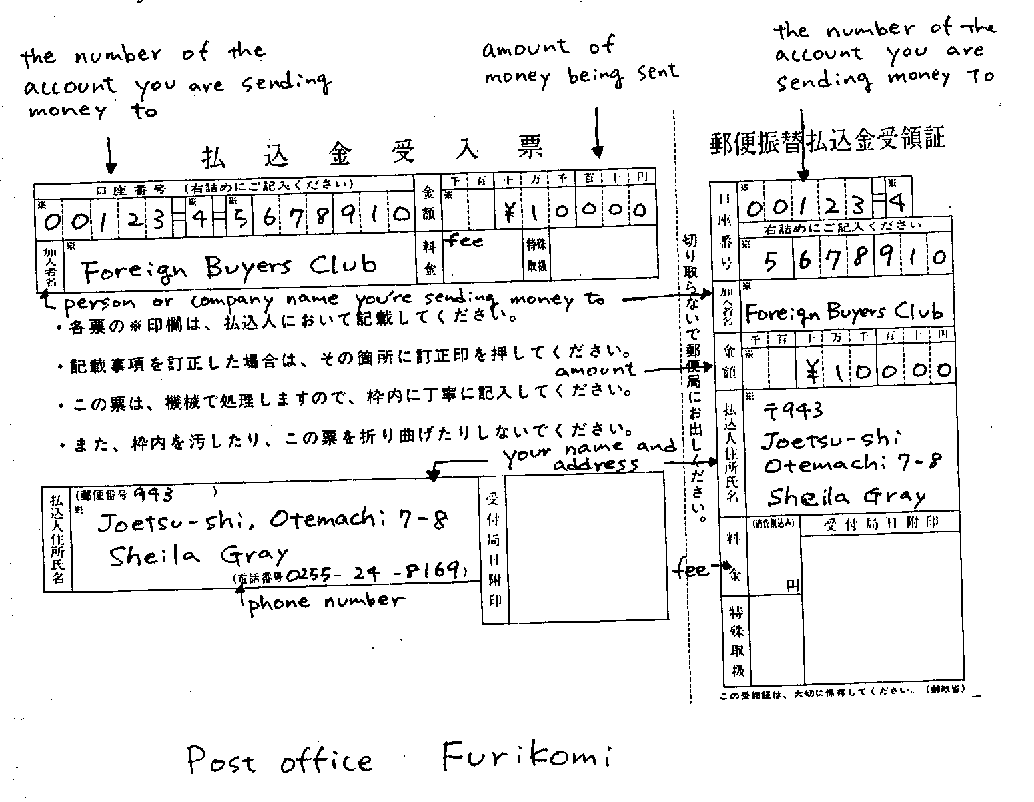 the number of the
account you are sending
money to
amount of
money being sent
the number of the
account you are
sending money to
払込金受入票
口座番号 (右詰めにご記入ください)
金額
千 百 十 万 千 百 十 円
※ 00123-4-5678910
※ ¥10000
加入者名
※ Foreign Buyers Club
料金
fee
特殊取扱
person or company name you're sending money to
・各票の※印欄は、払込人において記載してください。
・記載事項を訂正した場合は、その箇所に訂正印を押してください。
amount
・この票は、機械で処理しますので、枠内に丁寧に記入してください。
・また、枠内を汚したり、この票を折り曲げたりしないでください。
your name and
address
払込人住所氏名
(郵便番号 943 )
※
Joetsu-shi, Otemachi 7-8
Sheila Gray
(電話番号 0255-24-8169)
phone number
受付局日附印
切り取らないで郵便局にお出しください。
郵便振替払込金受領証
口座番号
※ 00123-4
右詰めにご記入ください
※ 5678910
加入者名
※
Foreign Buyers Club
金額
千 百 十 万 千 百 十 円
※ ¥10000
払込人住所氏名
※
〒943
Joetsu-shi
Otemachi 7-8
Sheila Gray
料金
(消費税込み)
円
fee
受付局日附印
特殊取扱
この受領証は、大切に保存してください。(郵政省)
Post office Furikomi